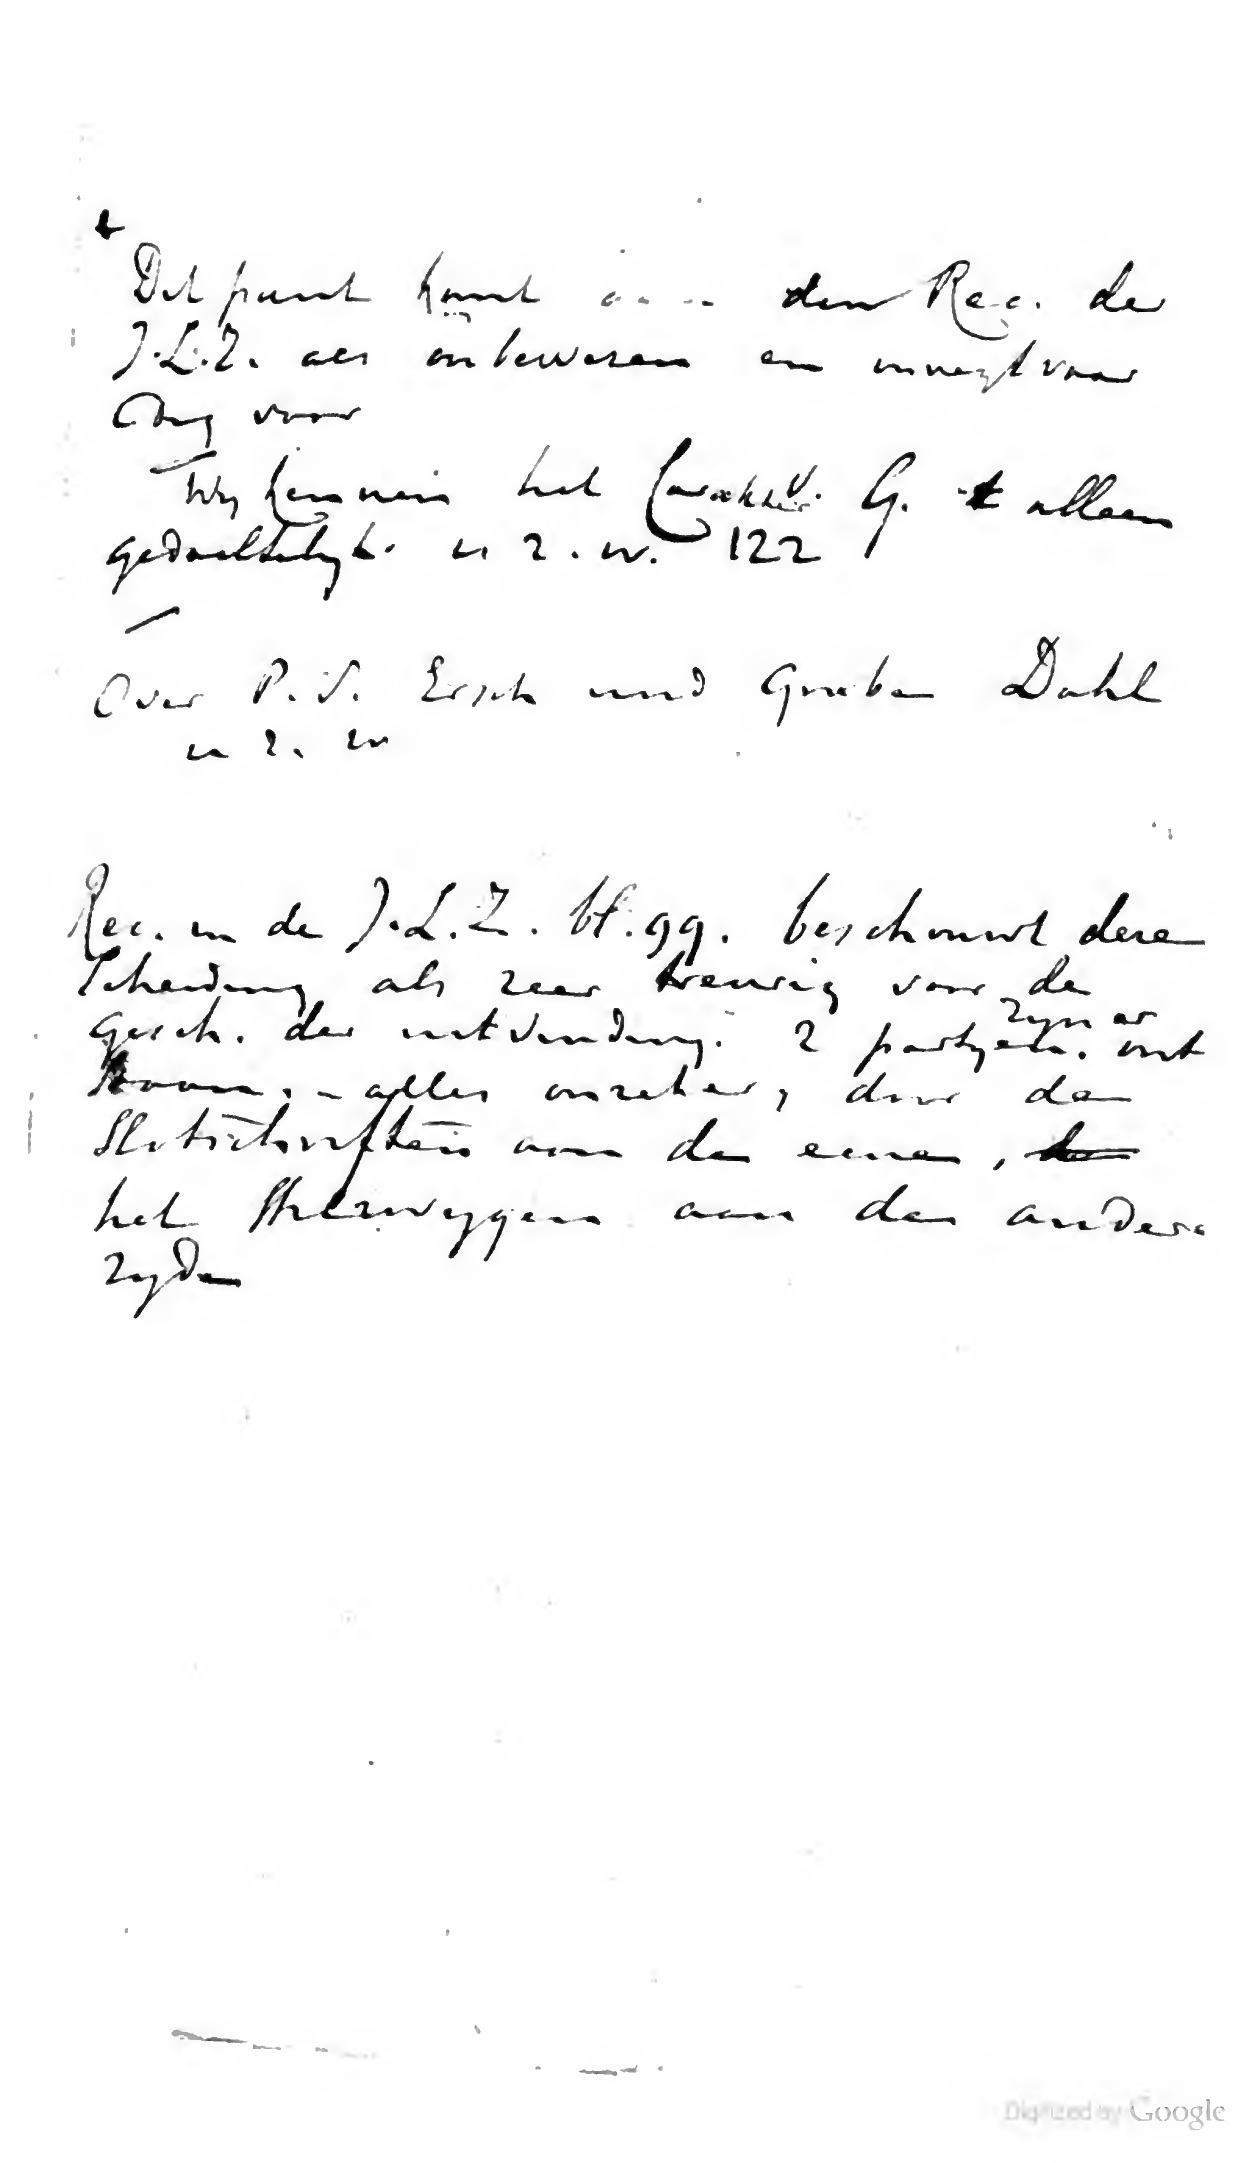 Dit punt komt aan den Rec. der
J.L.Z. als onbewezen en
voor
Wy kennen het Carakter v. G. alleen
gedeeltelyk. u. z. w. 122
Over P. S. Ersch und Gruber Dahl
u z. w
Rec. in de J.L.Z. bl. 99. beschouwt deze
scheiding als zeer treurig voor de
Gesch. der uitvinding. 2 partyen. zyn er ont
staan. - alles onzeker, door de
slotschriften aan de eene, de
het stilzwygen aan de andere
zyde
Digitized by Google